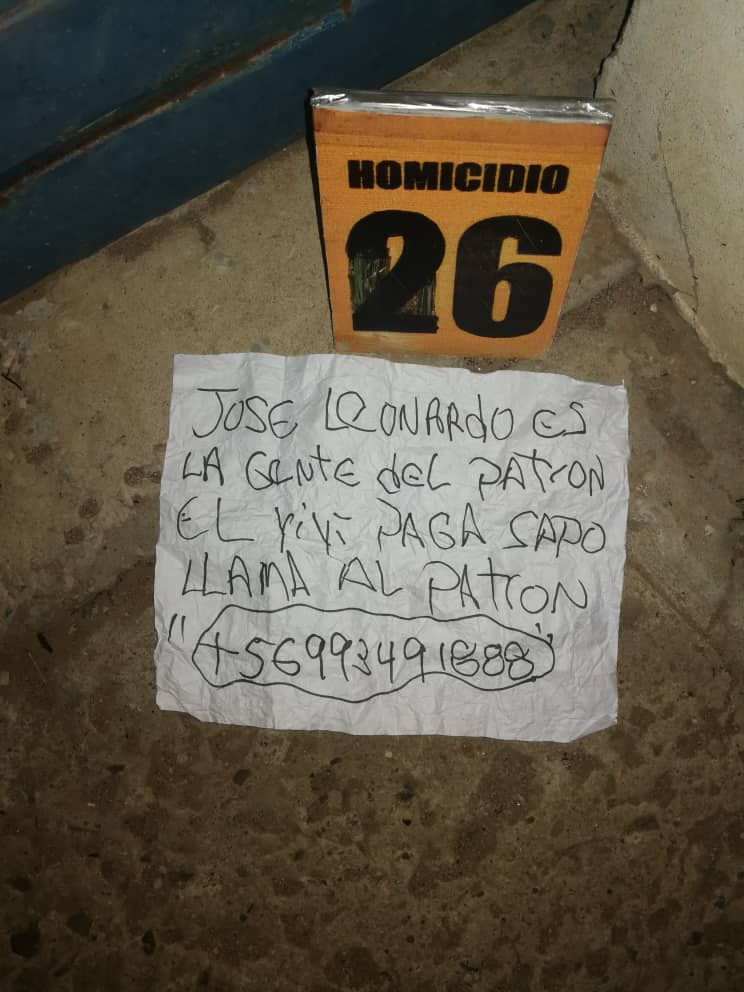 HOMICIDIO
26
JOSE LEONARDO ES
LA GENTE DEL PATRON
EL YIYI PAGA SAPO
LLAMA AL PATRON
"+56993491688"